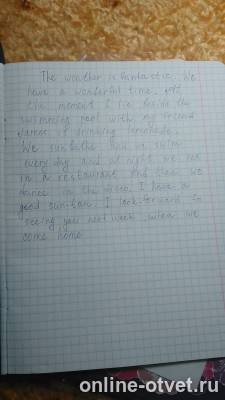 The weather is fantastic. We
have a wonderful time. At
moment I lie beside the
swimming pool with my friend
James is drinking lemonade.
We sunbathe and swim
every day and at night we eat
in a restaurant and then we
dance in the disco. I have a
good sun-tan. I look forward to
seeing you next week when we
come home
online-otvet.ru